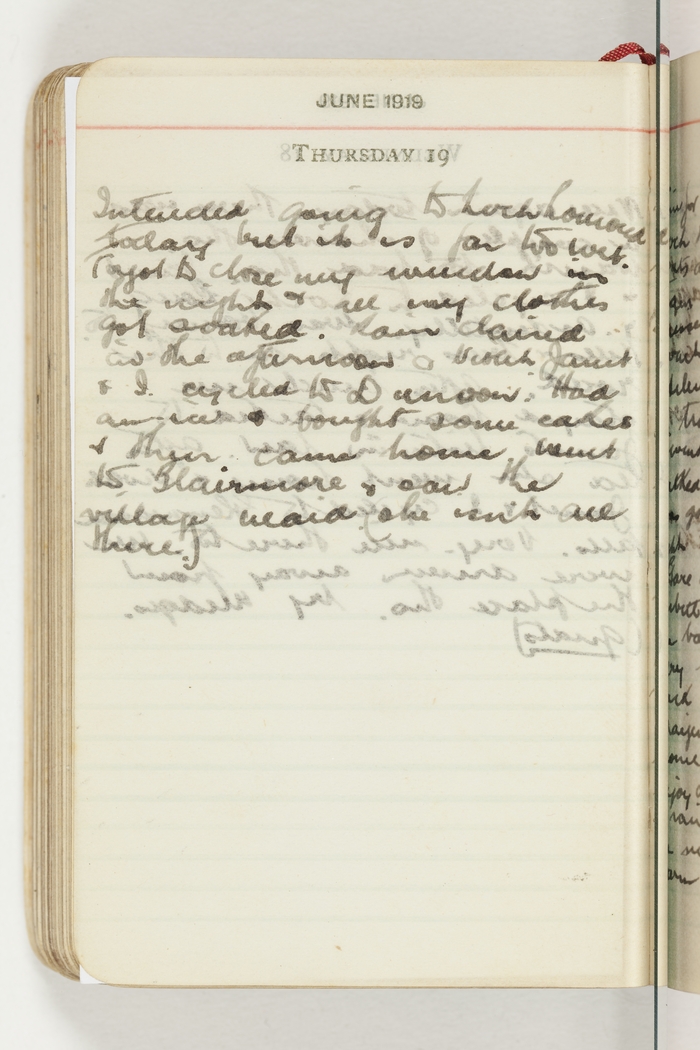 JUNE 1919
THURSDAY 19
Intended going to Loch
today but it is far too wet.
Forgot to close my window in
the night & all my clothes
got soaked. Rain cleared
in the afternoon & Janet
& I cycled to Dunoon. Had
an ice & bought some cakes
& then came home. Went
to Blairmore & saw the
village maid she isn't all
there.)